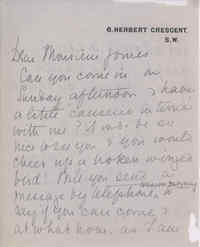 6, HERBERT CRESCENT,
S.W.
Dear Monsieur James
Can you come in on
Sunday afternoon & have
a little causerie intime
with me? It wd. be so
nice to see you & you would
cheer up a broken winged
bird! Will you send a
message by telephone, to
say if you can come, &
at what hour. as I am